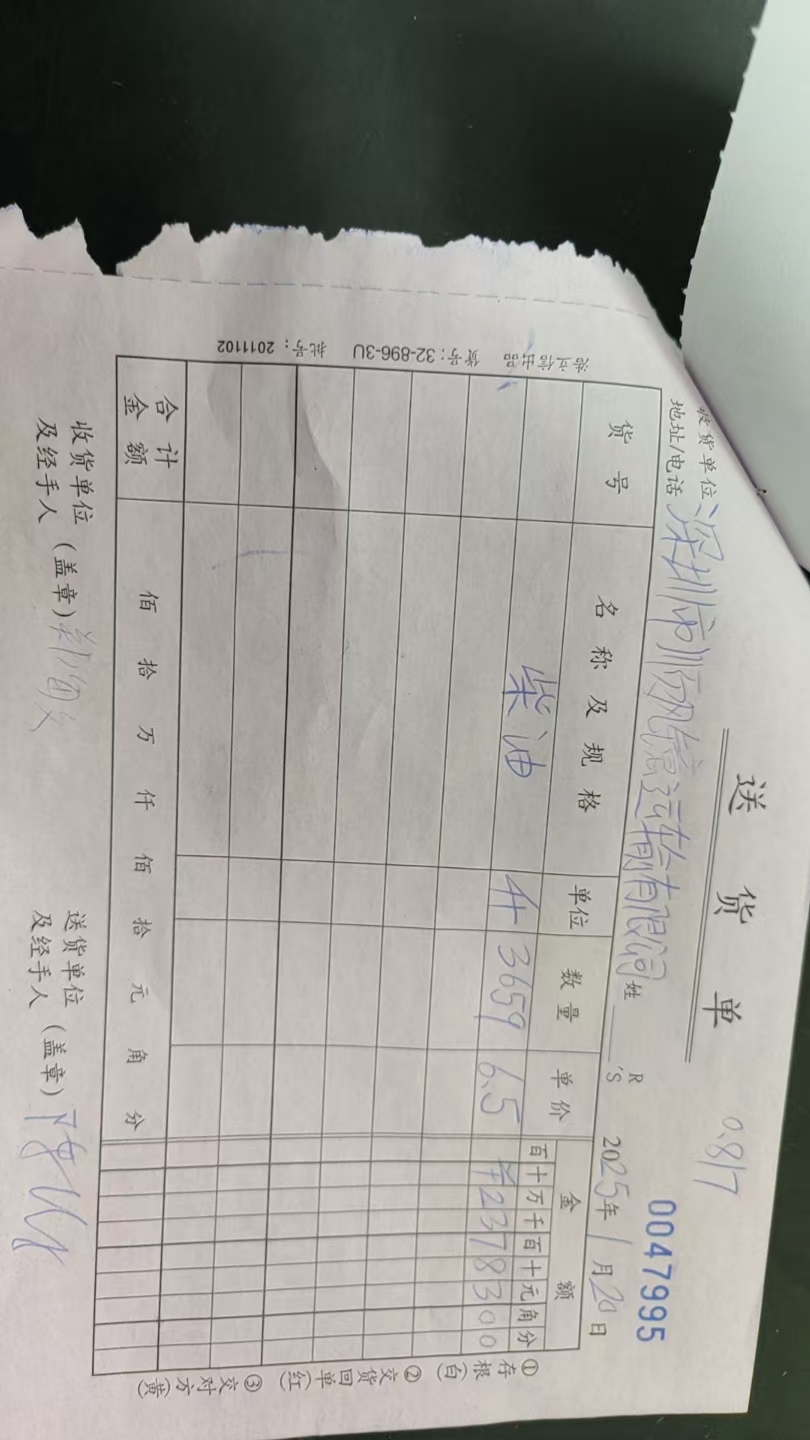 送货单
0.817
0047995
收货单位
地址/电话 深圳市顺帆信运输有限公司 姓 R'S 2025年1月20日
货号 名称及规格 单位 数量 单价 金额
百十万千百十元角分
柴油 升 3659 6.5 ¥2378300
合计金额 佰拾万仟佰拾元角分
收货单位及经手人(盖章) 送货单位及经手人(盖章)
①存根(白) ②交货回单(红) ③交对方(黄)
浩立信出品 货号：32-896-3U 批号：2011102